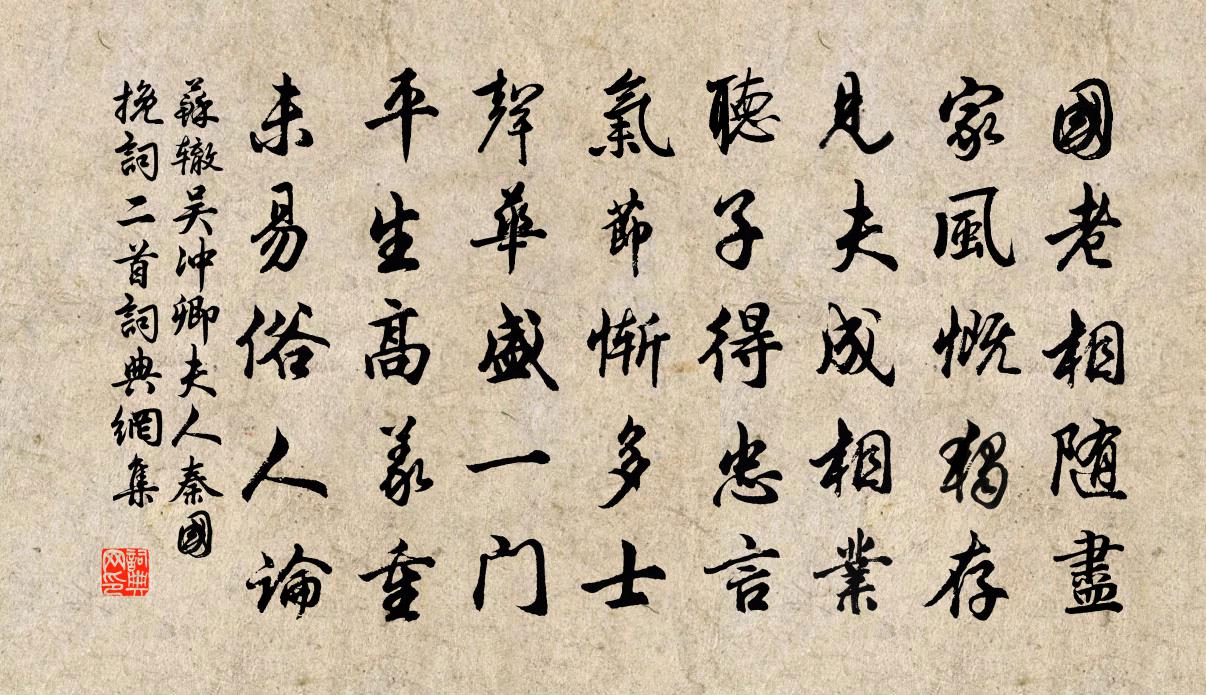 國老相随盡
家風慨獨存
見夫成相業
聽子得忠言
氣節慚多士
聲華盛一門
平生高義重
未易俗人論
蘇辙吴冲卿夫人秦國
挽詞二首詞典網集
詞典网印